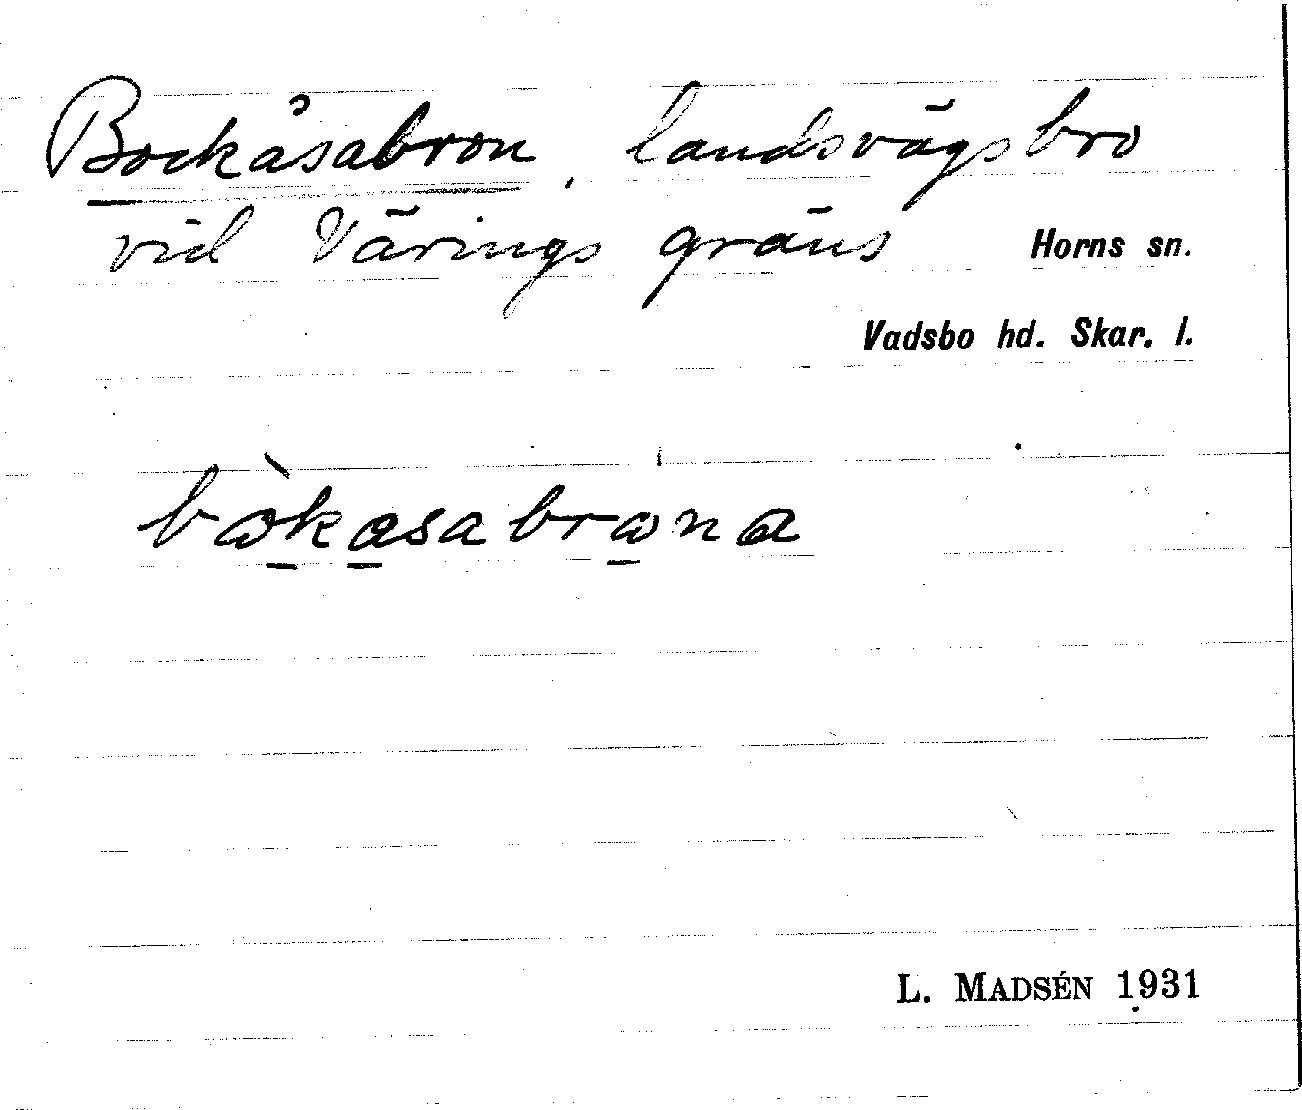 Bockåsabron, landsvägsbro
vid Värings gräns Horns sn.
Vadsbo hd. Skar. l.
bòkasabrona
L. MADSÉN 1931